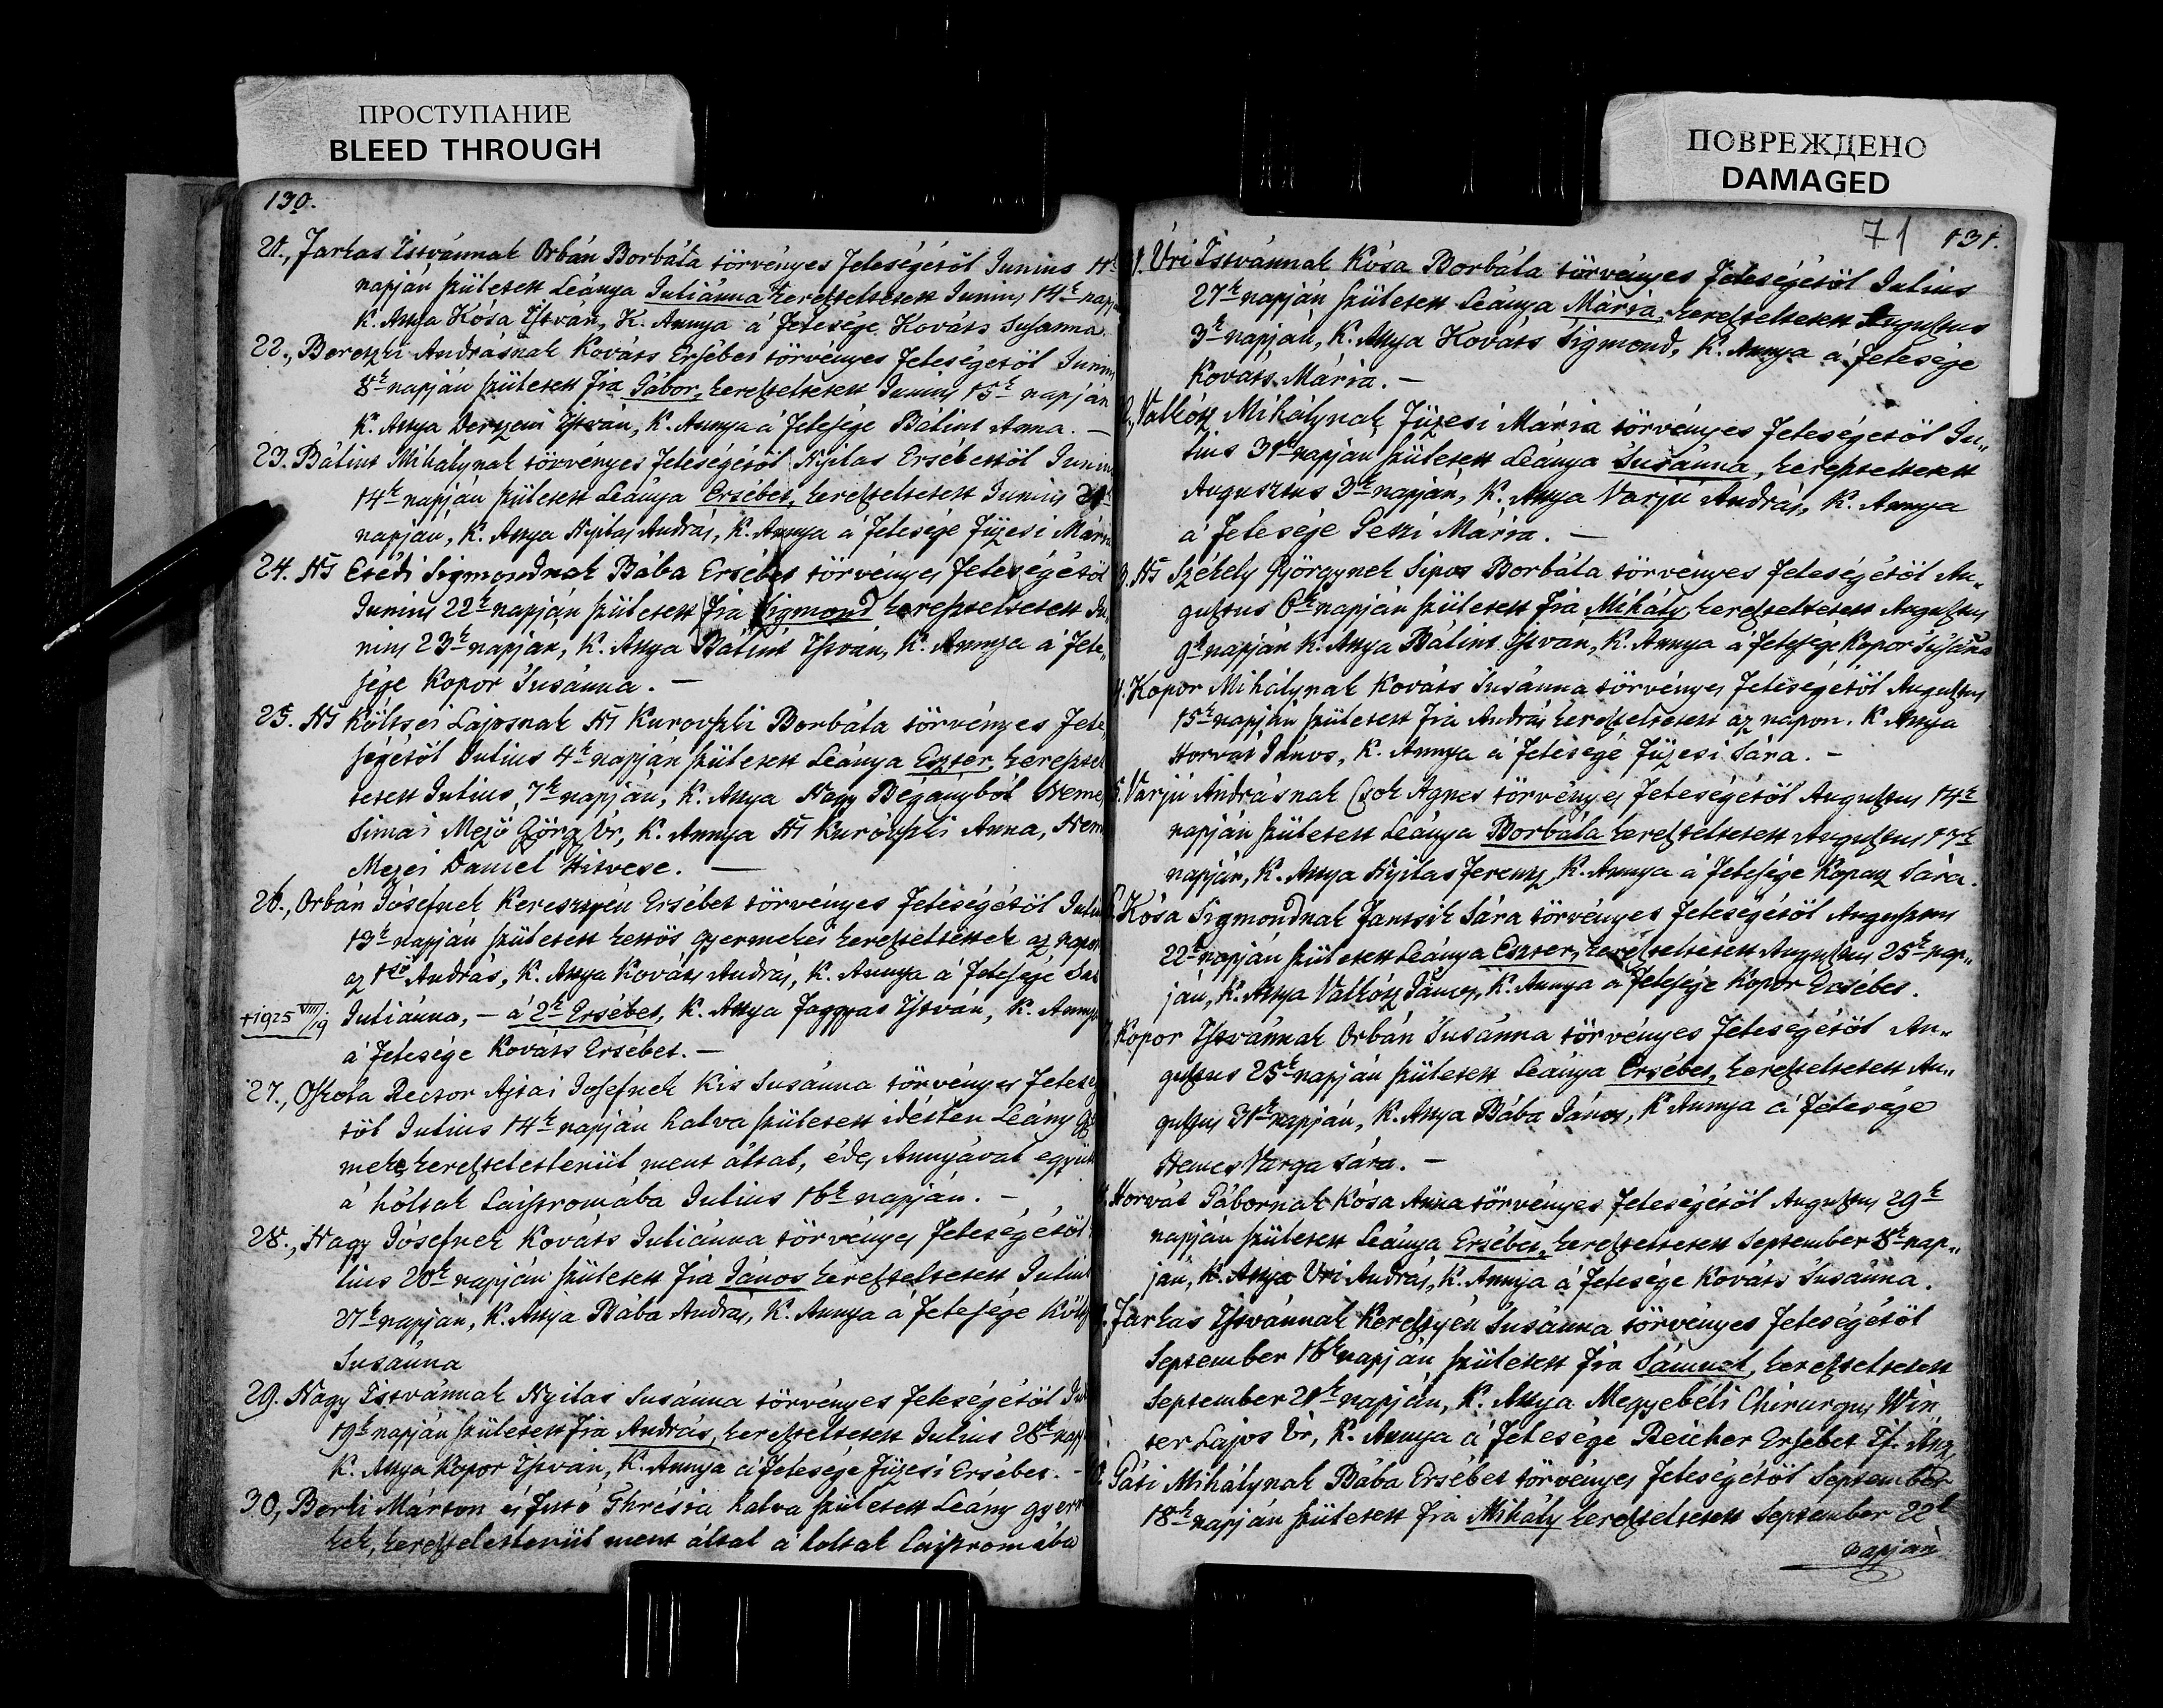 ПРОСТУПАНИЕ
BLEED THROUGH
ПОВРЕЖДЕНО
DAMAGED
130.
21., Farkas Istvánnak Orbán Borbála törvényes Feleségétöl Junius 11k
napján született Leánya Juliánna kereszteltetett Junius 14k napj
K. Attya Kósa István, K. Annya á Felesége Kováts Susanna.
22., Beretzki Andrásnak Kováts Ersébet törvényes Feleségétöl Junius
8k napján született Fia Gábor, kereszteltetett Junius 15k napján
K. Attya Derzseni István, K. Annya á Felesége Bálint Anna. —
23. Bálint Mihálynak törvényes Feleségétöl Nyilas Ersébettöl Junius
14k napján született Leánya Ersébet, kereszteltetett Junius 21k
napján, K. Attya Nyilas András, K. Annya á Felesége Füzesi Mária
24. Ns Csédi Sigmondnak Bába Ersébet törvényes Feleségétöl
Junius 22k napján született Fia Sigmond kereszteltetett Ju„
nius 23k napján, K. Attya Bálint István, K. Annya á Fele„
sége Kopor Susánna. —
25. Ns Költsei Lajosnak Ns Kurovszki Borbála törvényes Fele„
ségétöl Julius 4k napján született Leánya Eszter, keresztel
tetett Julius 7k napján, K. Attya Nagy Begányból Nemes
Simai Mejö Görg Úr, K. Annya Ns Kurovszki Anna, Nem
Mezei Daniel Hitvese. —
26., Orbán Jósefnek Keresztyén Ersébet törvényes Feleségétöl Julius
13k napján született kettös gyermekei kereszteltettek az napon
az 1sö András, K. Attya Kováts András, K. Annya á Felesége
+1925 VIII/19 Juliánna, — á 2k Ersébet, K. Attya Faggyas István, K. Annya
á Felesége Kováts Ersébet. —
27., Oskola Rector Ajtai Josefnek Kis Susánna törvényes Felesé
töl Julius 14k napján halva született idétlen Leány gy
meke kereszteletlenül ment által, édes Annyával együtt
á hóltak Laistromába Julius 16k napján. —
28., Nagy Jósefnek Kováts Juliánna törvényes Feleségétöl
lius 20k napján született Fia János kereszteltetett Julius
27k napján, K. Attya Bába András, K. Annya á Felesége
Susánna
29. Nagy Istvánnak Nyilas Susánna törvényes Feleségétöl Ju
19k napján született Fia András, kereszteltetett Julius 28k nap
K. Attya Kopor István, K. Annya á Felesége Füzesi Ersébet. —
30, Berli Márton és Futó Thrésia halva született Leány gyerm
kek, kereszteletlenül ment által á holtak Laistromába
71 131.
1. Úri Istvánnak Kósa Borbála törvényes Feleségétöl Julius
27k napján született Leánya Mária, kereszteltetett Augustus
3k napján, K. Attya Kováts Sigmond, K. Annya á Felesége
Kováts Mária. —
2., Valkósz Mihálynak Füzesi Mária törvényes Feleségétöl Ju„
lius 31k napján született Leánya Susánna, kereszteltetett
Augusztus 3k napján, K. Attya Varjú András, K. Annya
á Felesége Mária. —
3. Ns Székely Györgynek Sipos Borbála törvényes Feleségétöl Au„
gustus 6k napján született Fia Mihály, kereszteltetett Augustus
9k napján K. Attya Bálint István, K. Annya á Felesége Kopor Susána
4. Kopor Mihálynak Kováts Susánna törvényes Feleségétöl Augustus
15k napján született Fia András kereszteltetett az napon. K Attya
Horvát János, K. Annya á Felesége Füzesi Sára. —
5. Varjú Andrásnak Csok Agnes törvényes Feleségétöl Augustus 14k
napján született Leánya Borbála kereszteltetett Augustus 17k
napján, K. Attya Nyilas Ferencz, K. Annya á Felesége Kopasz Sára.
6. Kósa Sigmondnak Jantsik Sára törvényes Feleségétöl Augustus
22k napján született Leánya Eszter, kereszteltetett Augustus 25k nap„
ján, K. Attya Valkósz János, K. Annya á Felesége Kopor Ersébet.
Kopor Istvánnak Orbán Susánna törvényes Feleségétöl Au„
gustus 25k napján született Leánya Ersébet, kereszteltetett Au„
gustus 31k napján, K. Attya Bába János, K. Annya á Felesége
Nemes Varga Sára. —
Horvát Gábornak Kósa Anna törvényes Feleségétöl Augustus 29k
napján született Leánya Ersébet, kereszteltetett September 8k nap„
ján, K. Attya Uri András, K. Annya á Felesége Kováts Susánna.
Farkas Istvánnak Keresztyén Susánna törvényes Feleségétöl
September 16k napján született Fia Sámuel, kereszteltetett
September 21k napján, K. Attya Megyebéli Chirurgus Win
ter Lajos Úr, K. Annya á Felesége Reicher Ersébet Tf. Asz,
Gáti Mihálynak Bába Ersébet törvényes Feleségétöl September
18k napján született Fia Mihály kereszteltetett September 22k
napján